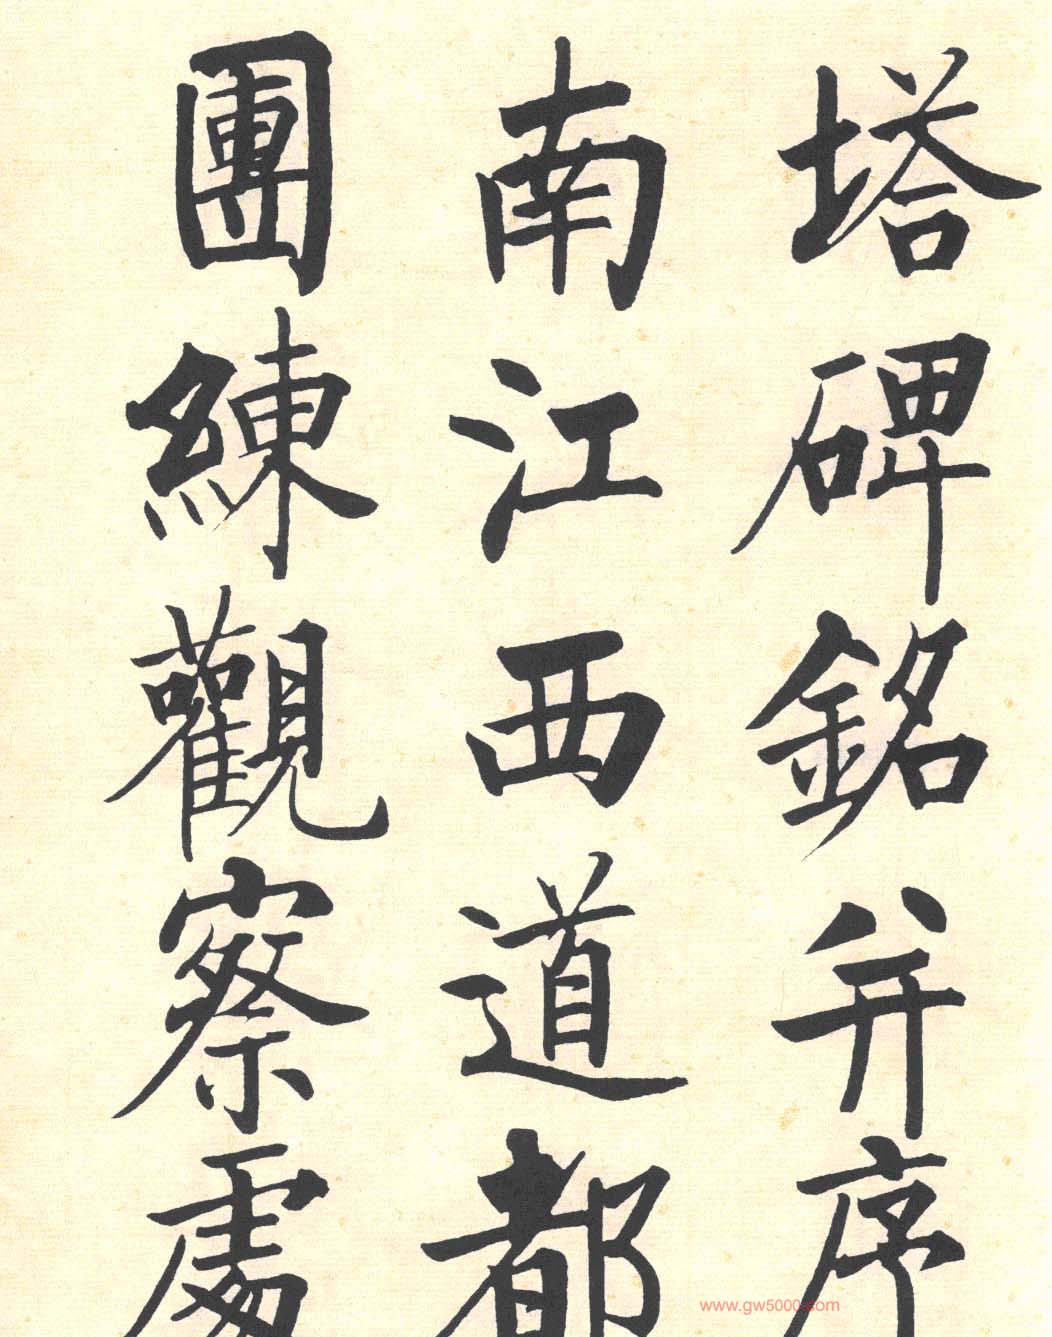 塔碑銘并序
南江西道都
團練觀察處
www.gw5000.com